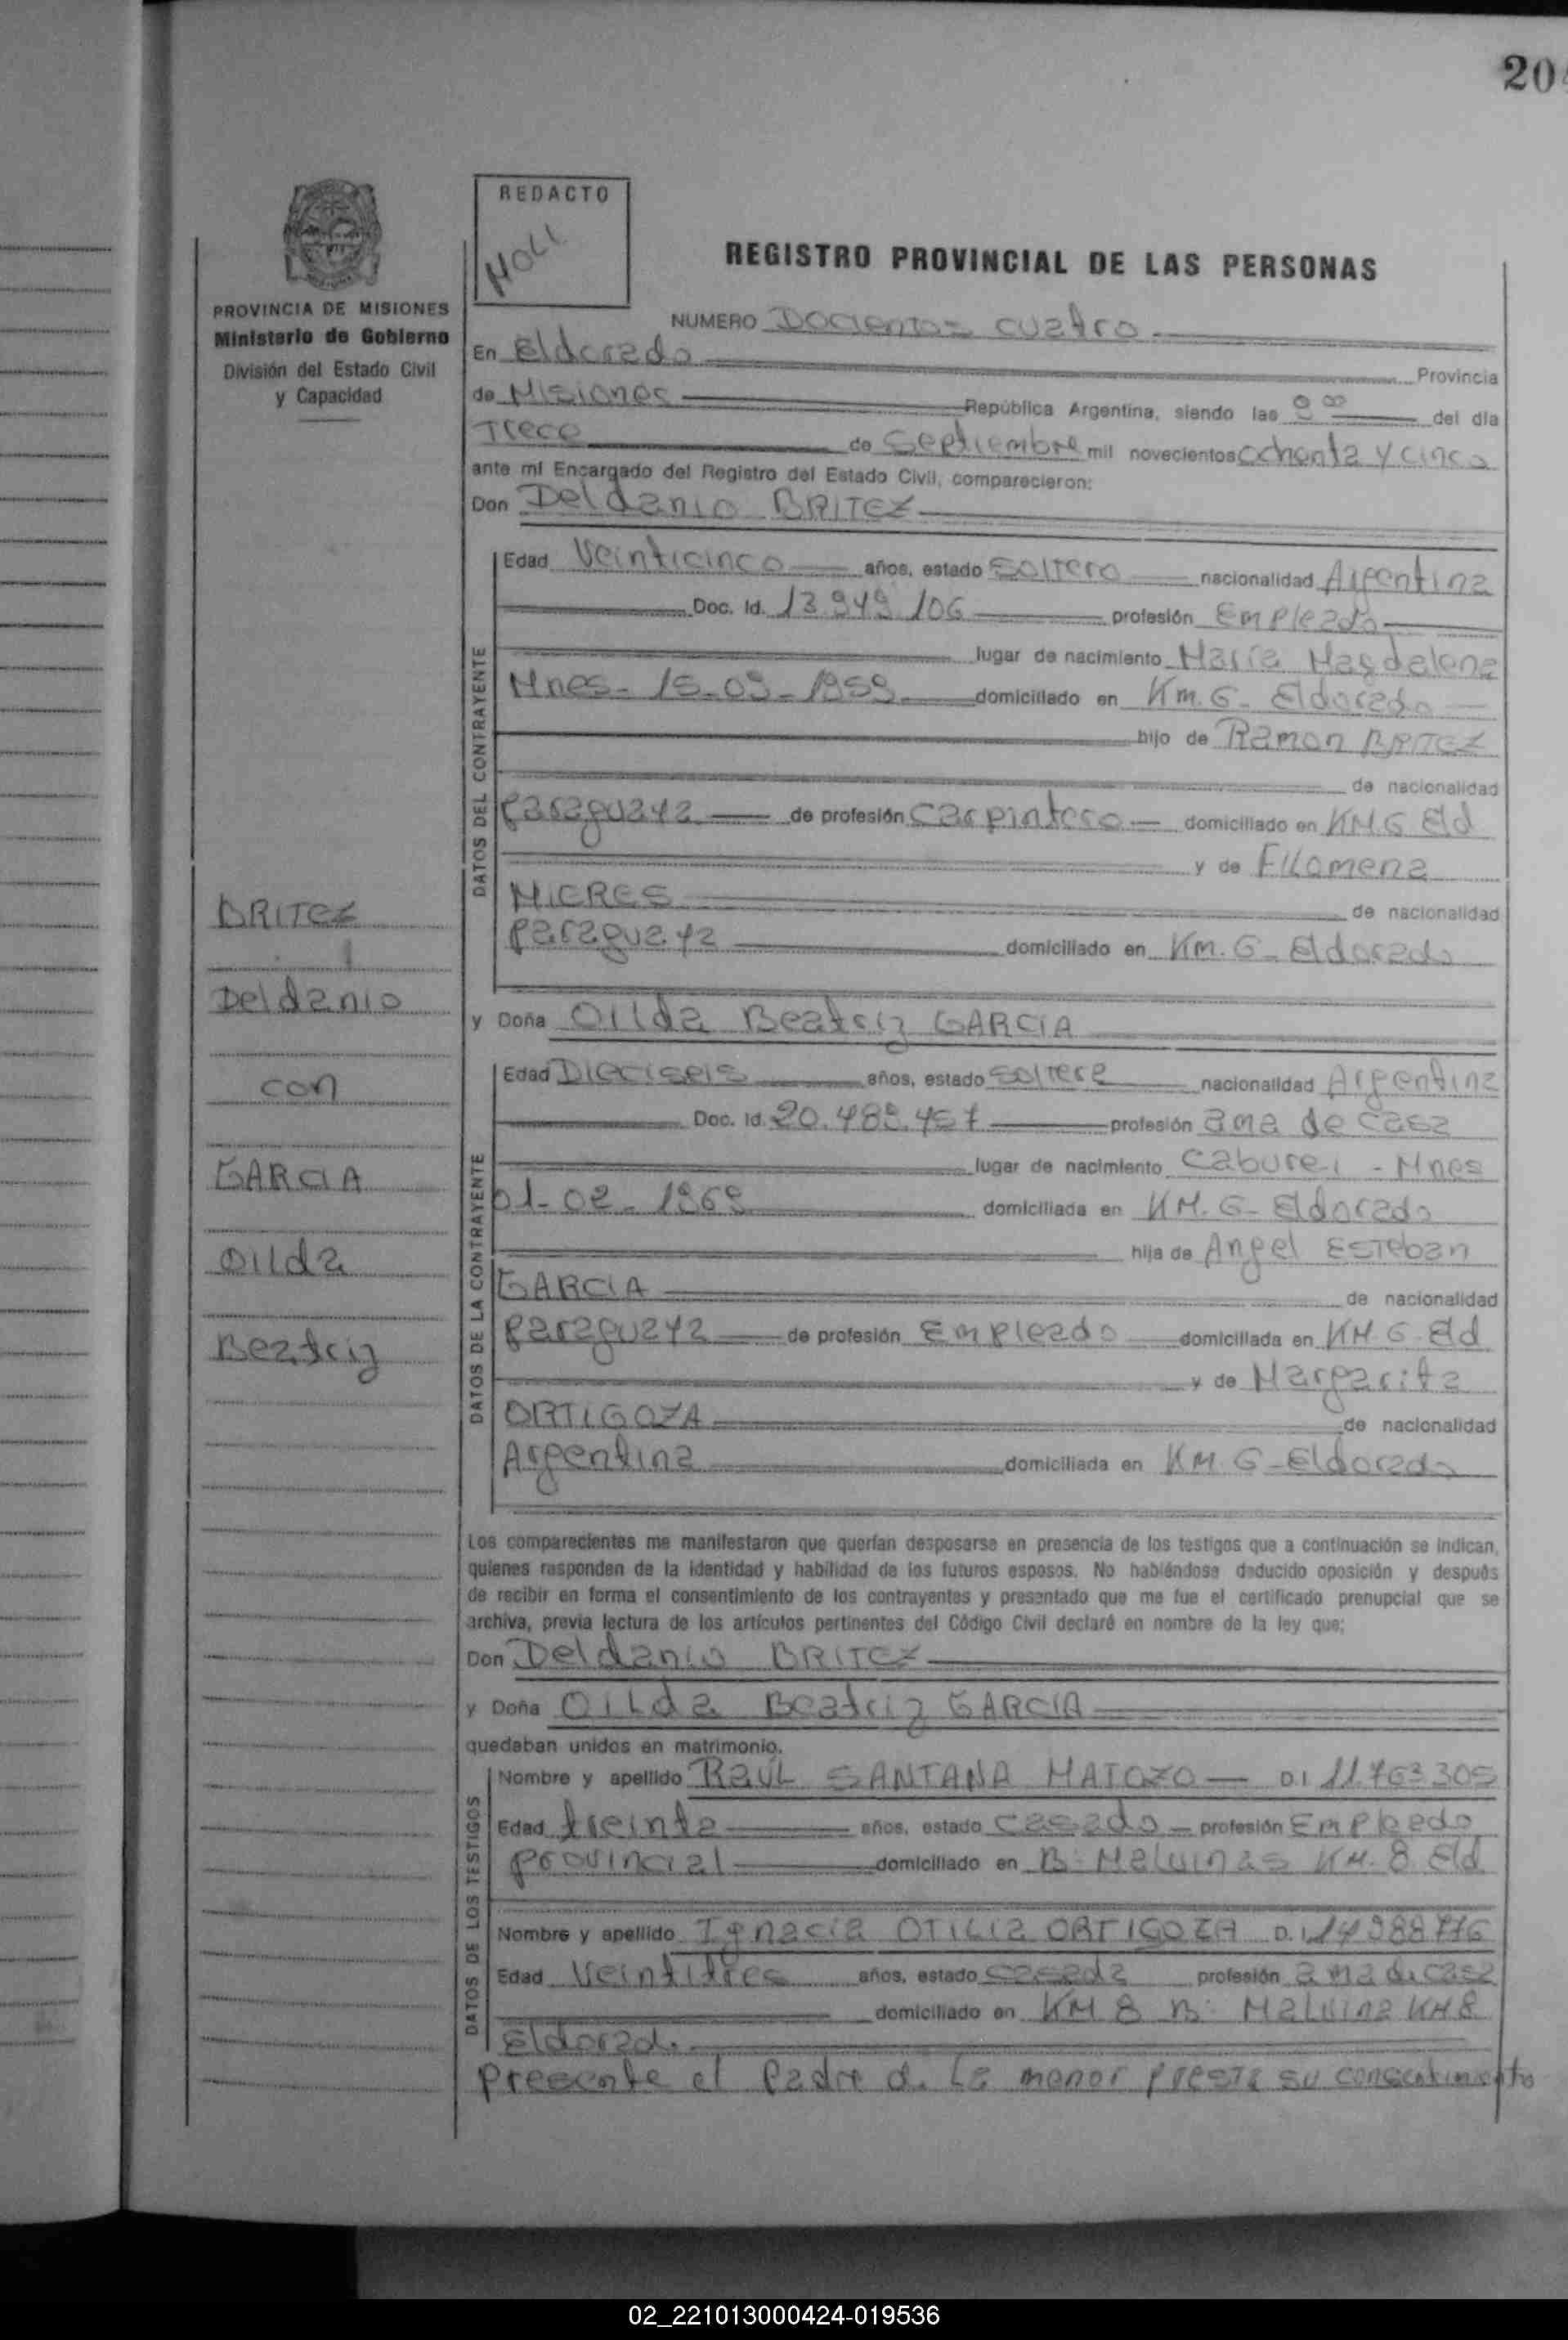 204
REDACTO
MOLI
REGISTRO PROVINCIAL DE LAS PERSONAS
PROVINCIA DE MISIONES
Ministerio de Gobierno
División del Estado Civil
y Capacidad
NUMERO Docientos cuatro
En Eldorado Provincia
de Misiones República Argentina, siendo las 9 00 del día
Trece de Septiembre mil novecientos ochenta y cinco
ante mí Encargado del Registro del Estado Civil, comparecieron:
Don Deldanio BRITEZ
DATOS DEL CONTRAYENTE
Edad Veinticinco años, estado Soltero nacionalidad Argentina
Doc. Id. 13.949.106 profesión Empleado
lugar de nacimiento María Magdalena
Mnes- 15-09-1959 domiciliado en Km. 6- Eldorado
hijo de Ramon BRITEZ
de nacionalidad
paraguaya de profesión Carpintero domiciliado en KM 6 Eld
y de Filomena
MIERES de nacionalidad
paraguaya domiciliado en Km. 6- Eldorado
y Doña Oilda Beatriz GARCIA
DATOS DE LA CONTRAYENTE
Edad Dieciseis años, estado soltera nacionalidad Argentina
Doc. Id. 20.489.457 profesión ama de casa
lugar de nacimiento Caburei - Mnes
01-02-1969 domiciliada en KM. 6- Eldorado
hija de Angel Esteban
GARCIA de nacionalidad
paraguaya de profesión Empleado domiciliada en KM. 6 Eld
y de Margarita
ORTIGOZA de nacionalidad
Argentina domiciliada en KM. 6- Eldorado
BRITEZ
Deldanio
con
GARCIA
Oilda
Beatriz
Los comparecientes me manifestaron que querían desposarse en presencia de los testigos que a continuación se indican,
quienes responden de la identidad y habilidad de los futuros esposos. No habiéndose deducido oposición y después
de recibir en forma el consentimiento de los contrayentes y presentado que me fue el certificado prenupcial que se
archiva, previa lectura de los artículos pertinentes del Código Civil declaré en nombre de la ley que:
Don Deldanio BRITEZ
y Doña Oilda Beatriz GARCIA
quedaban unidos en matrimonio.
DATOS DE LOS TESTIGOS
Nombre y apellido Raúl SANTANA MATOZO D.I 11.763.305
Edad treinta años, estado casado profesión Empleado
provincial domiciliado en B: Malvinas KM. 8 Eld
Nombre y apellido Ignacia Otilia ORTIGOZA D.I
Edad Veintitres años, estado casada profesión ama de casa
domiciliado en KM 8 B: Malvina KM 8
Eldorado.
Presente el Padre d. La menor presta su consentimiento
02_221013000424-019536